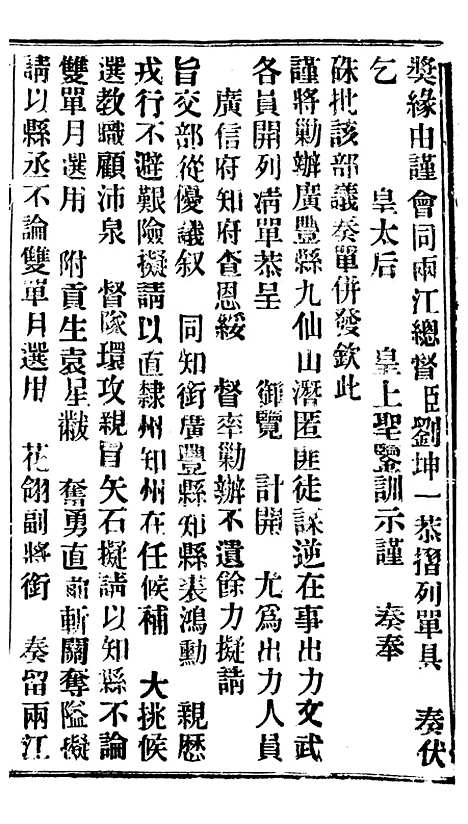 奬緣由謹會同兩江總督臣劉坤一恭摺列單具　奏伏
乞　皇太后　皇上聖鑒訓示謹　奏奉
硃批該部議奏單併發欽此
謹將勦辦廣豐縣九仙山潛匿匪徒謀逆在事出力文武
各員開列清單恭呈　御覽　計開　尤爲出力人員
廣信府知府查恩綏　督率勦辦不遺餘力擬請
旨交部從優議叙　同知銜廣豐縣知縣裘鴻勳　親歷
戎行不避艱險擬請以直隸州知州在任候補　大挑候
選教職顧沛泉　督隊環攻親冒矢石擬請以知縣不論
雙單月選用　附貢生袁星黻　奮勇直前斬關奪隘擬
請以縣丞不論雙單月選用　花翎副將銜　奏留兩江